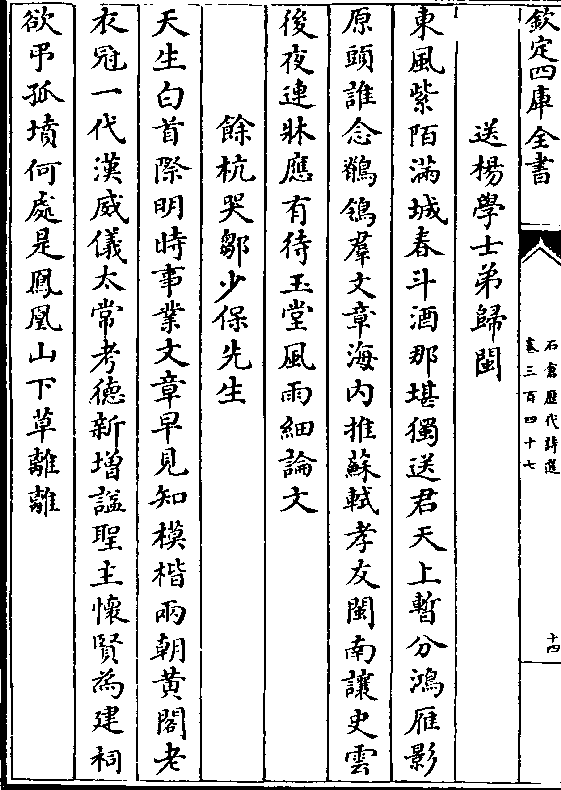 欽定四庫全書
石倉歷代詩選
卷三百四十七
十四
送楊學士弟歸閩
東風紫陌滿城春斗酒那堪獨送君天上暫分鴻雁影
原頭誰念鶺鴒羣文章海内推蘇軾孝友閩南讓史雲
後夜連牀應有待玉堂風雨細論文
餘杭哭鄒少保先生
天生白首際明時事業文章早見知模楷兩朝黄閣老
衣冠一代漢威儀太常考德新增諡聖主懷賢為建祠
欲弔孤墳何處是鳳凰山下草離離